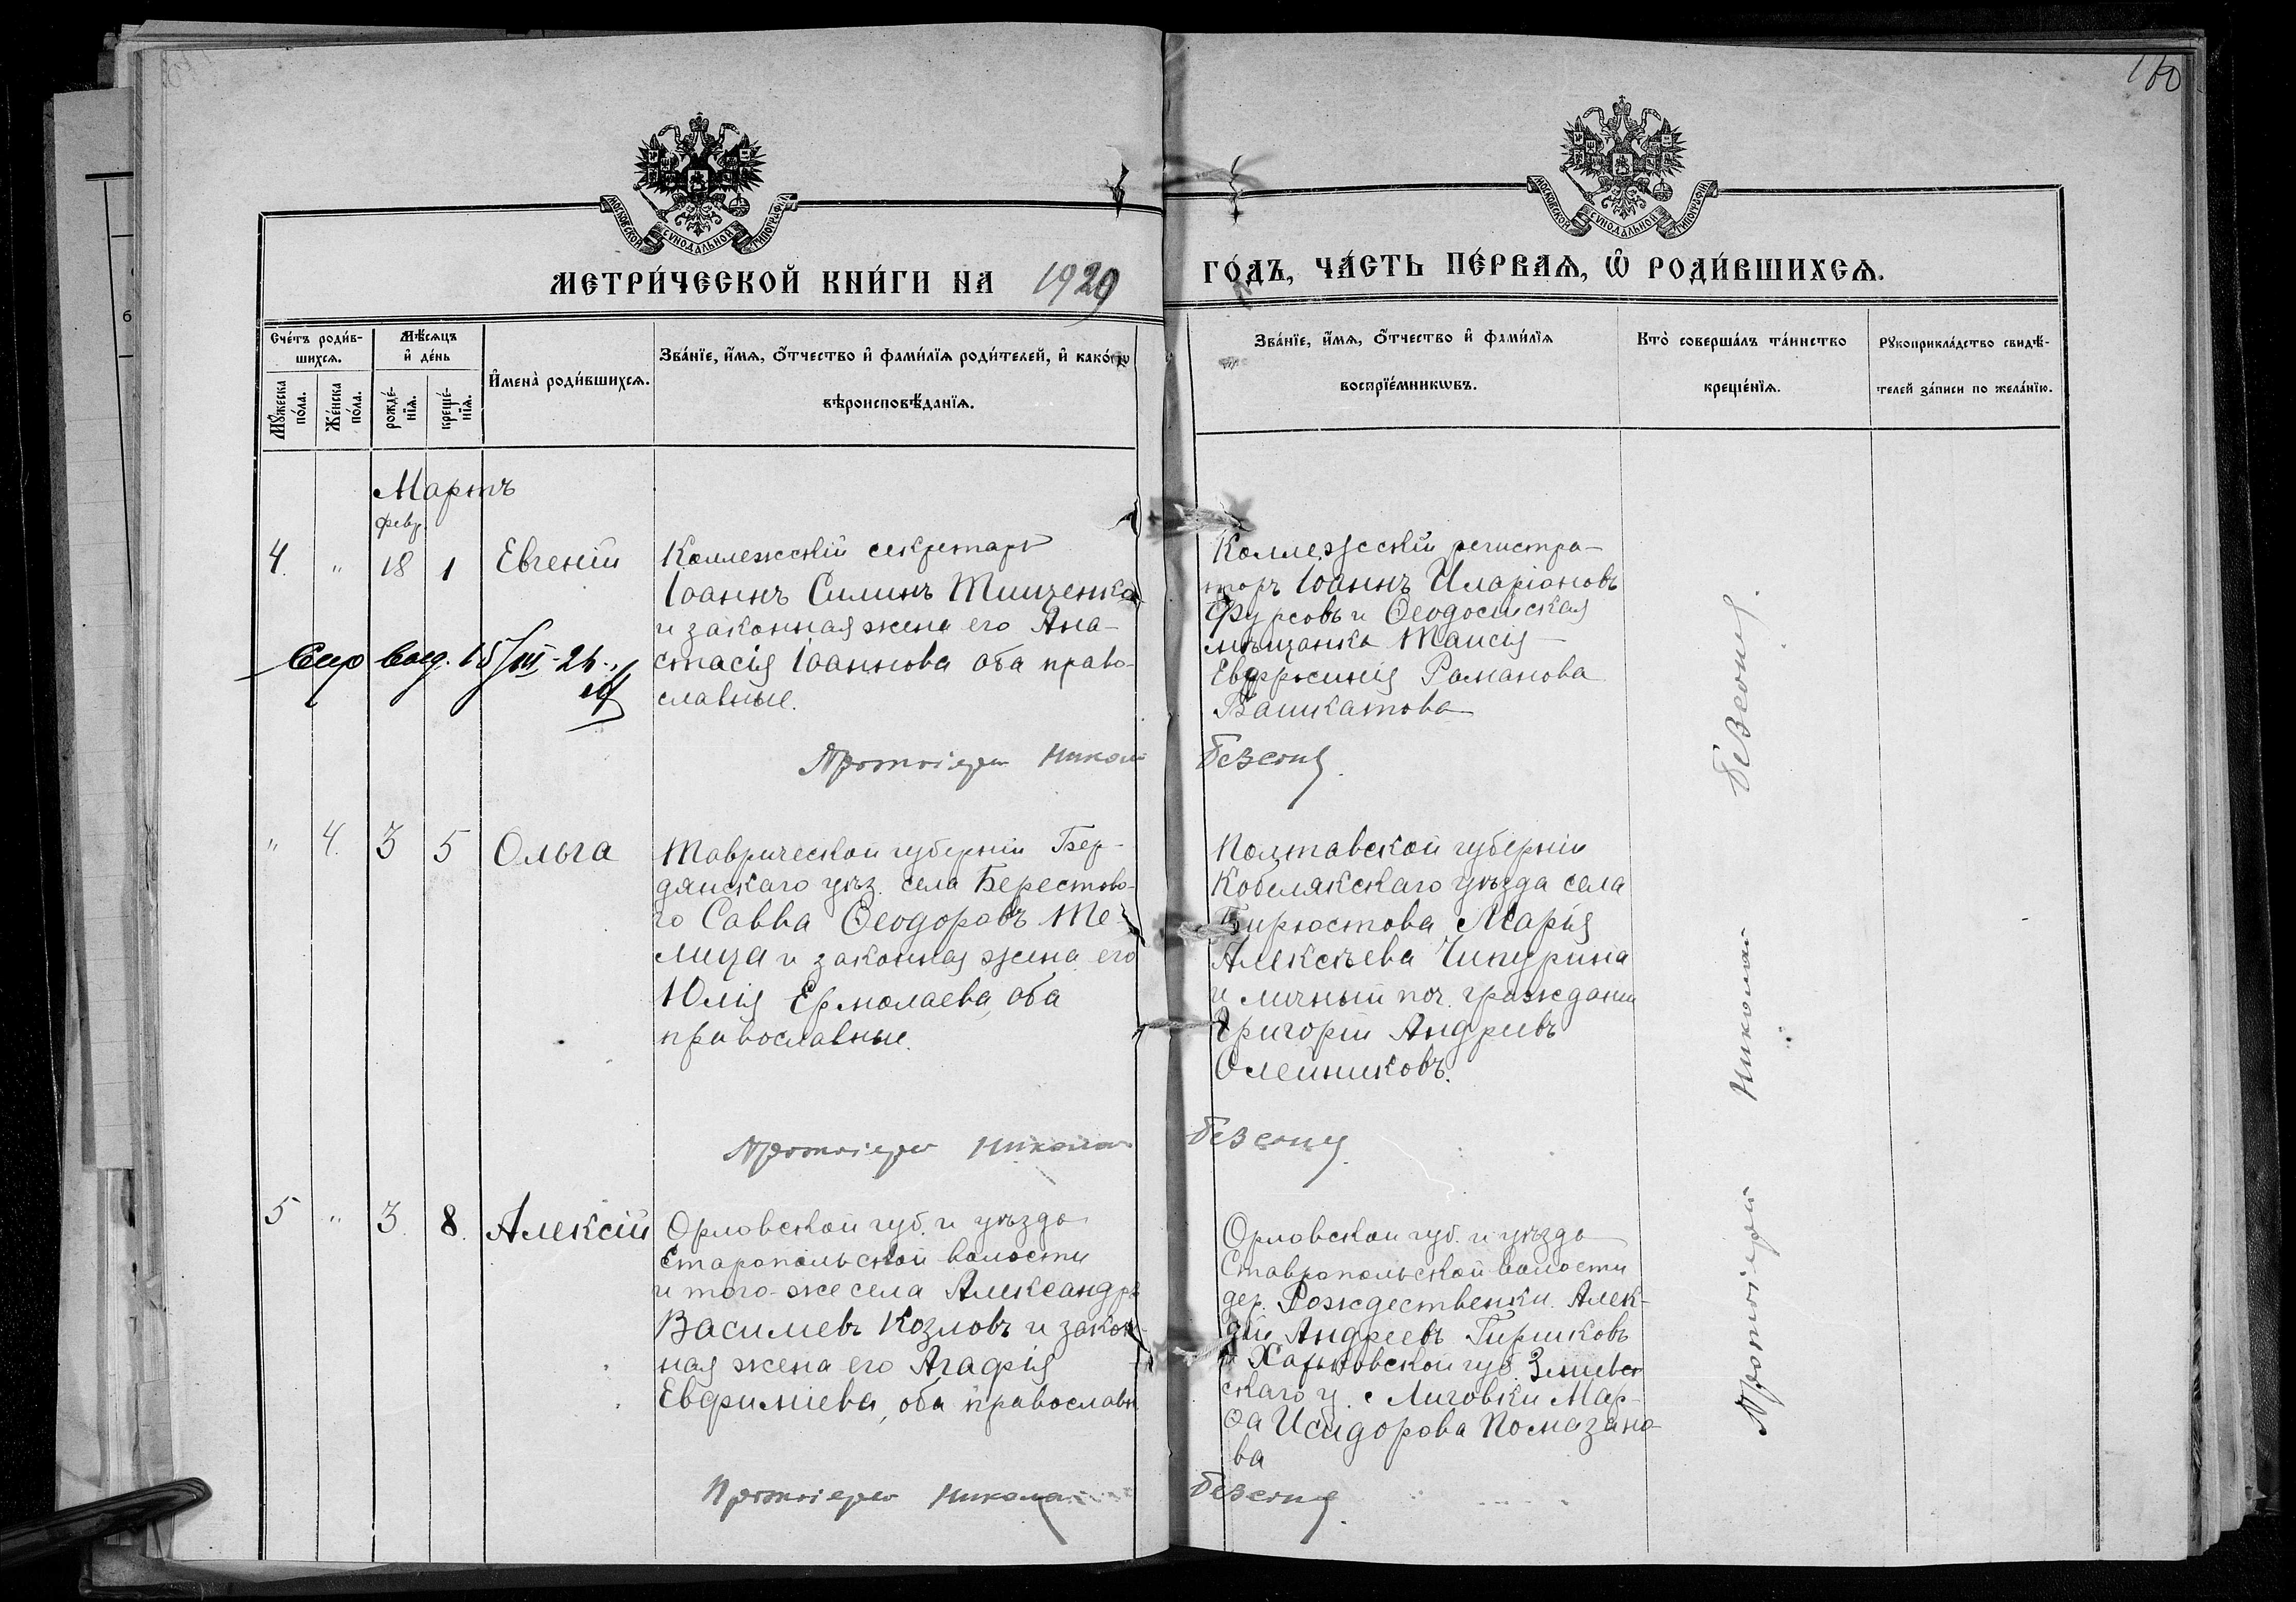 160
МОСКОВСКОЙ СѴНОДАЛЬНОЙ ТИПОГРАФІИ
МОСКОВСКОЙ СѴНОДАЛЬНОЙ ТИПОГРАФІИ
МЕТРИ́ЧЕСКОЙ КНИ́ГИ НА 1920 ГО́ДЪ, ЧА́СТЬ ПЕ́РВАѦ, Ѡ҆ РОДИ́ВШИХСѦ.
Сче́тъ роди́в-
шихсѧ.
Мꙋ́жеска
по́ла.
Же́нска
по́ла.
Мѣ́сѧцъ
и҆ де́нь
рожде́-
нїѧ.
креще́-
нїѧ.
И҆мена̀ роди́вшихсѧ.
Зва́нїе, и҆́мѧ, ѻ҆́тчество и҆ фами́лїѧ роди́телей, и҆ како́гѡ
вѣроисповѣ́данїѧ.
Зва́нїе, и҆́мѧ, ѻ҆́тчество и҆ фами́лїѧ
воспрїе́мникѡвъ.
Кто̀ соверша́лъ та́инство
креще́нїѧ.
Рꙋкоприкла́дство свидѣ́-
телей за́писи по жела́нїю.
Мартъ
февр.
4. " 18 1 Евгеній
Коллежскій секретарь
Іоаннъ Силинъ Тищенко
и законная жена его Ана-
стасія Іоаннова оба право-
славные.
15/III-26.
Коллежскій регистра-
торъ Іоаннъ Иларіоновъ
Фурсовъ и Ѳеодосійская
мѣщанка Таисія
Евфросинія Романова
Башкатова
Протоіерей Николай Безсоня.
" 4. 3 5 Ольга
Таврической губерніи Бер-
дянскаго уѣз. села Берестово-
го Савва Ѳеодоровъ Те-
лица и законная жена его
Юлія Ермолаева, оба
православные.
Полтавской губерніи
Кобелякскаго уѣзда села
Бирюстова Марія
Алексѣева Чипурина
и личный поч. гражданин
Григорій Андреевъ
Олейниковъ.
Протоіерей Николай Безсоня.
5 " 3. 8. Алексій
Орловской губ. и уѣзда
Старопольской волости
и того-же села Александръ
Васильевъ Козловъ и закон-
ная жена его Агафія
Евфиміева, оба православн
Орловской губ. и уѣзда
Ставропольской волости
дер. Рождественки Алек-
сій Андреевъ Гиршковъ
и Харьковской губ. Зміевс
скаго у. с Лиговки Мар-
ѳа Исидорова Помазано-
ва
Протоіерей Николай Безсоня.
Протоіерей Николай Безсоня.